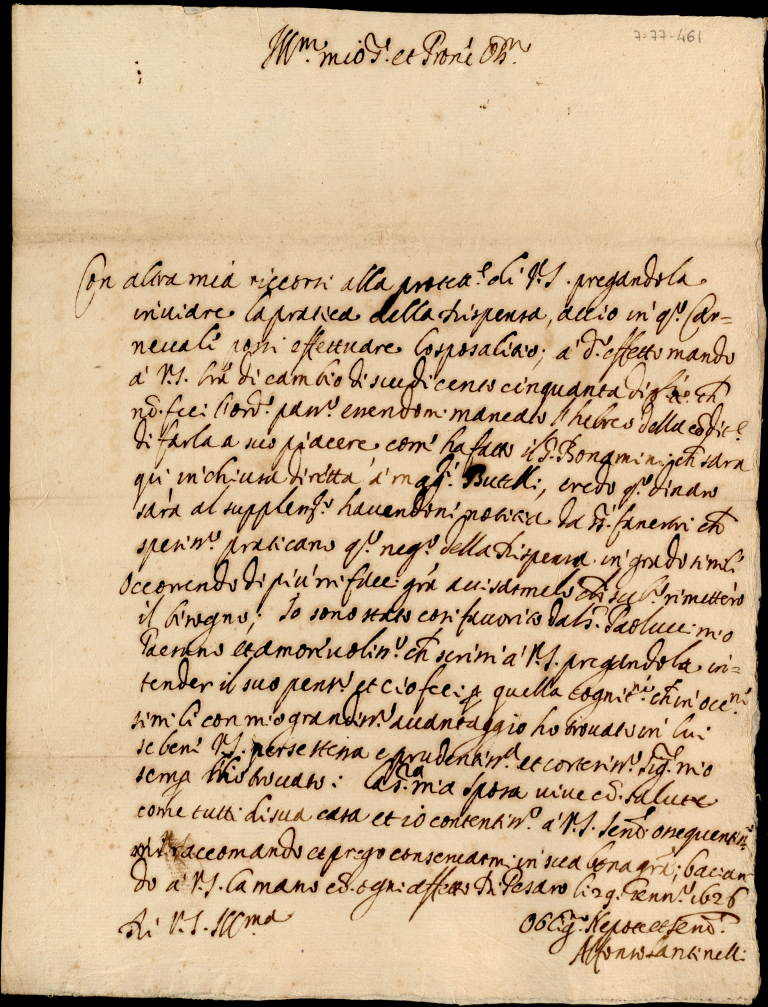 7-77-461
Ill.mo mio S.r et Pron.e Oss.mo
Con altra mia ricorsi alla protett.e di V.S. pregandola
inviare la pratica della dispensa, acciò in q.o Car=
nevali possi effettuare lo sposalitio; à d.o effetto mando
à V.S. l'r̃a di cambio di scudi cento cinquanta di ch̃
nõ. feci l'ord. essendomi mancato l'hebreo della
di farla a suo piacere com' ha fatto il S.r Bonamini, ch̃ sarà
qui inchiusa diretta à Butelli, credo q.o dinaro
sarà al havendoni notitia da S.ri fanestri ch̃
praticano q.o neg.o della dispensa in grado simili
Occorrendo di più mi facci gr̃a avisarmelo ch̃ subº. rimetterò
il bisogno; Io sono stato così favorito dal S.r Paolucci mio
Paesano et amorevoliss.o ch̃ scrissi à V.S. pregandola in=
tender il suo pens.o et ciò feci p quella cognit.ne ch̃ in occ.ni
simili con mio grandiss.o avantaggio ho trovato in lui
se beni V.S. per se stessa e prudentiss.a et cortesiss.o Sig.r mio
sempre l'ho trovato: La S.ra mia sposa vive cõ. salute
come tutti di sua casa et io contentiss.o à V.S. Send. ossequentiss.
mi raccomando et prego conservarmi in sua bona gr̃a; bacian=
do à V.S. la mano cõ. ogni affetto Di Pesaro li 29. Genn.o 1626
Di V.S. Ill.ma
Oblig.o Nepote et Send.
Alfonso Santinelli